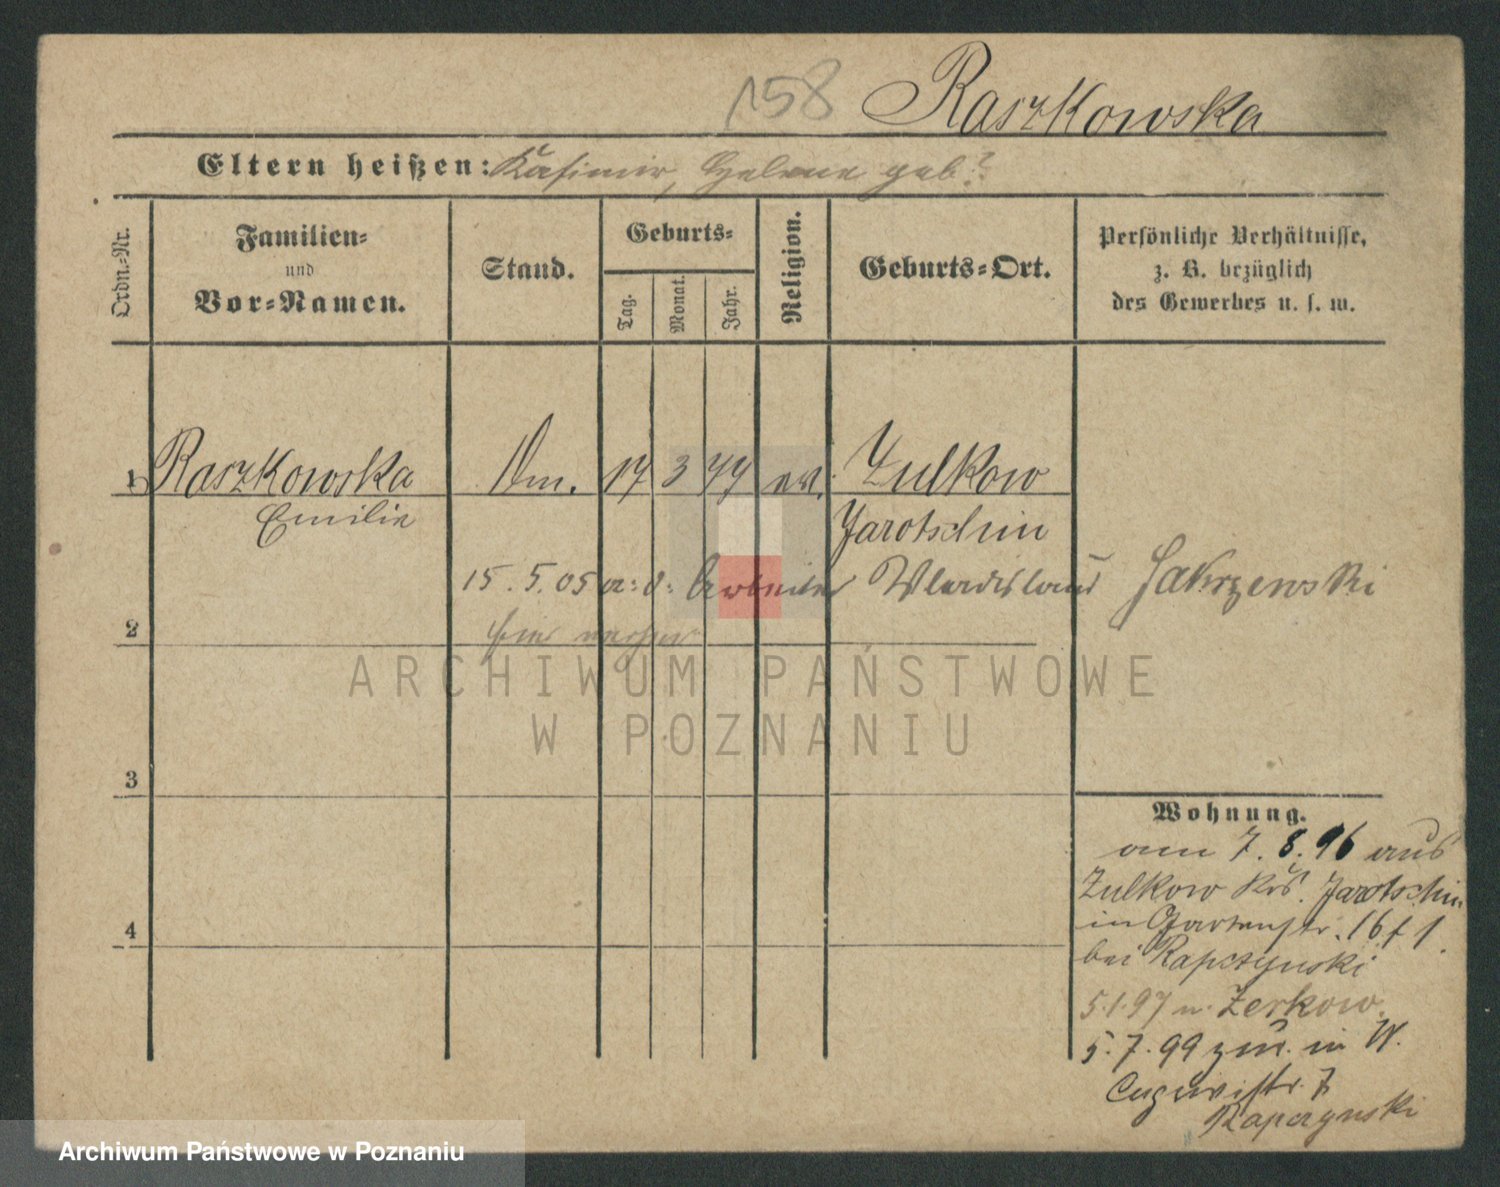 158 Raszkowska
Eltern heißen: Kasimir, Helene geb?
Ordn.-Nr.
Familien-
und
Vor-Namen.
Stand.
Geburts-
Tag.
Monat.
Jahr.
Religion.
Geburts-Ort.
Persönliche Verhältnisse,
z. B. bezüglich
des Gewerbes u. s. w.
1 Raszkowska 17 3 77 Zulkow
Emilie Jarotschin
15.5.05 Arbeiter Wladislaus Jakrzewski
2 hier
ARCHIWUM PAŃSTWOWE
W POZNANIU
3
Wohnung.
am 7.8.96 aus
Zulkow Krs. Jarotschin
4
in Gartenstr. 16 f 1.
bei Rapczynski
5.1.97 n. Zerkow.
5.7.99 zur. in W.
7
Rapczynski
Archiwum Państwowe w Poznaniu